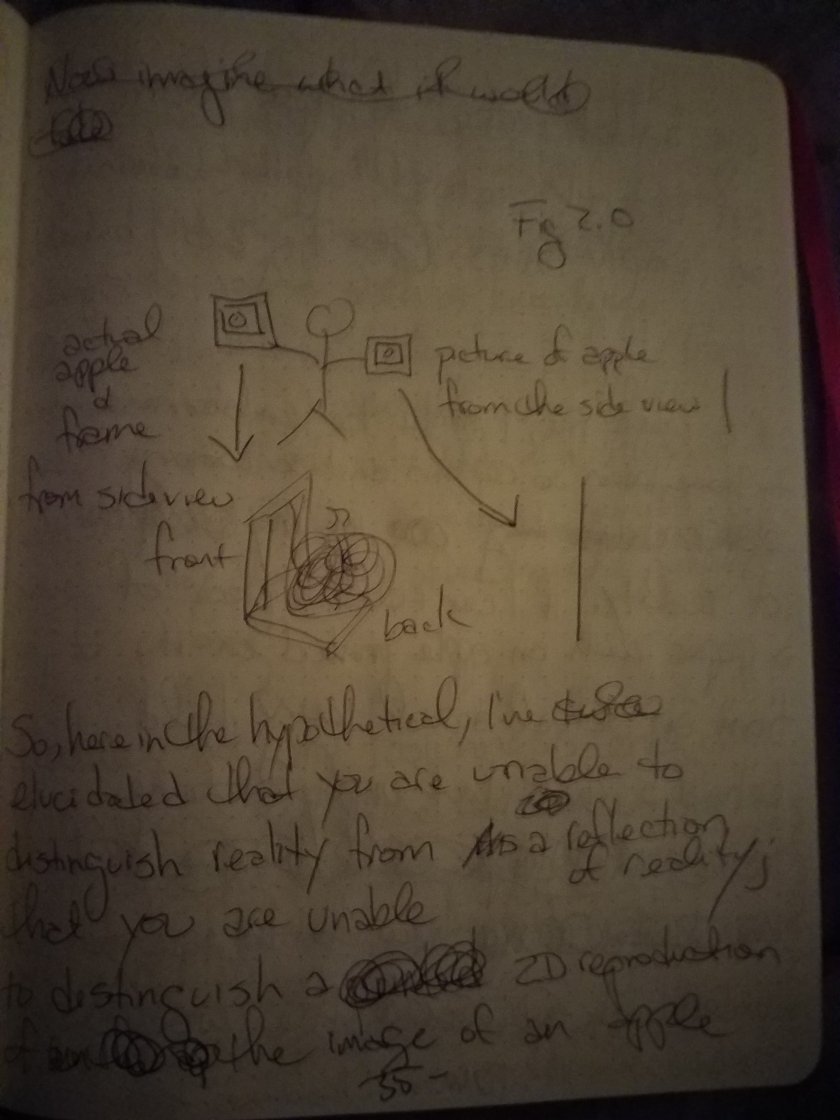 Now imagine what it would
Fig 2.0
actual
apple
&
frame
picture of apple
from the side view |
from side view
front
back
So, here in the hypothetical, I've
elucidated that you are unable to
distinguish reality from a reflection
of reality;
that you are unable
to distinguish a 2D reproduction
of the image of an apple